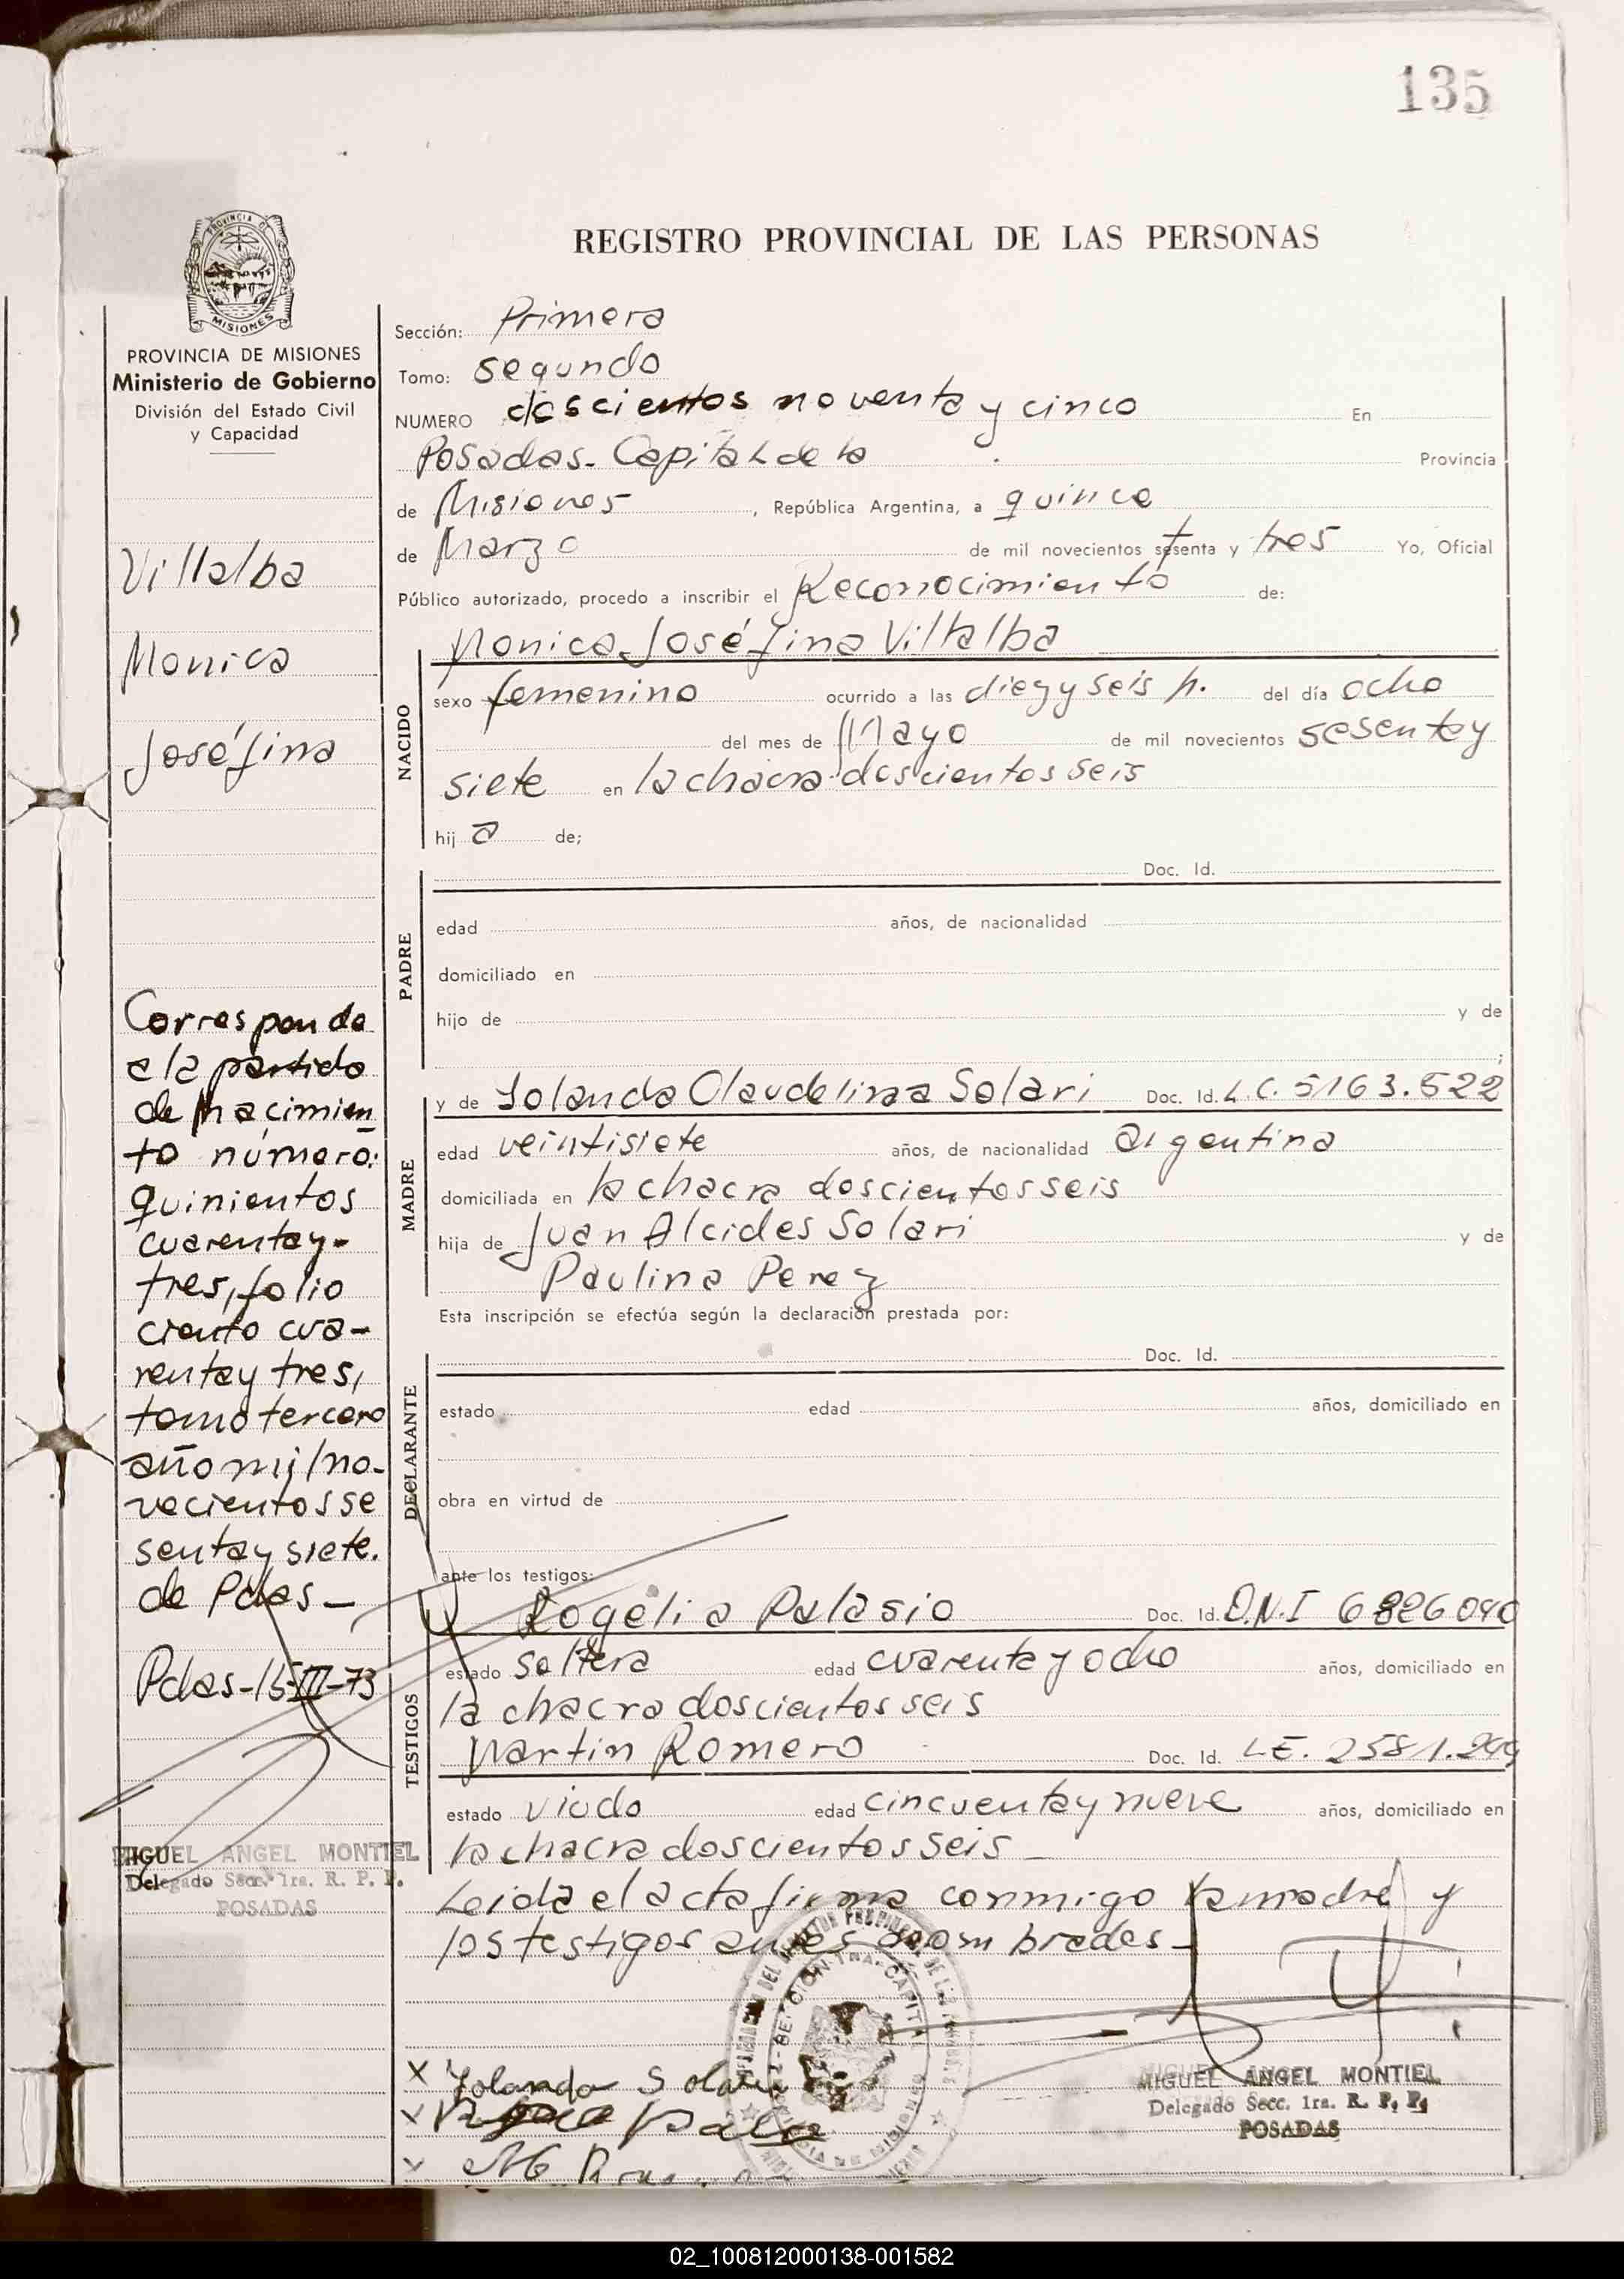 135
REGISTRO PROVINCIAL DE LAS PERSONAS
PROVINCIA
MISIONES
PROVINCIA DE MISIONES
Ministerio de Gobierno
División del Estado Civil
y Capacidad
Villalba
Monica
Joséfina
Corresponde
a la partida
de nacimien
to número:
quinientos
cuarenta y-
tres, folio
ciento cua-
renta y tres,
tomo tercero
año mil no-
vecientos se
senta y siete.
de Pdas-
Pdas-15-III-73
MIGUEL ANGEL MONTIEL
Delegado Secc. 1ra. R. P. P.
POSADAS
Sección: Primera
Tomo: segundo
NUMERO doscientos noventa y cinco En
Posadas- Capital de la Provincia
de Misiones, República Argentina, a quince
de Marzo de mil novecientos setenta y tres Yo, Oficial
Público autorizado, procedo a inscribir el Reconocimiento de:
Monica Joséfina Villalba
NACIDO
sexo femenino ocurrido a las diez y seis h. del día ocho
del mes de Mayo de mil novecientos sesenta y
siete en la chacra doscientos seis
hij a de;
PADRE
Doc. Id.
edad años, de nacionalidad
domiciliado en
hijo de y de
;
MADRE
y de Yolanda Claudelina Solari Doc. Id. L.C. 5163.522
edad veintisiete años, de nacionalidad argentina
domiciliada en la chacra doscientos seis
hija de Juan Alcides Solari y de
Paulina Perez
Esta inscripción se efectúa según la declaración prestada por:
DECLARANTE
Doc. Id.
estado edad años, domiciliado en
obra en virtud de
ante los testigos:
TESTIGOS
Rogelia Palasio Doc. Id. D.N.I 6826040
estado soltera edad cuarenta y ocho años, domiciliado en
la chacra doscientos seis
Martin Romero Doc. Id. L.E. 2581.
estado viudo edad cincuenta y nueve años, domiciliado en
la chacra doscientos seis-
Leida el acta firma conmigo la madre y
los testigos antes nombrados-
x Yolanda Solari
x
x
MIGUEL ANGEL MONTIEL
Delegado Secc. 1ra. R. P. P.
POSADAS
02_100812000138-001582